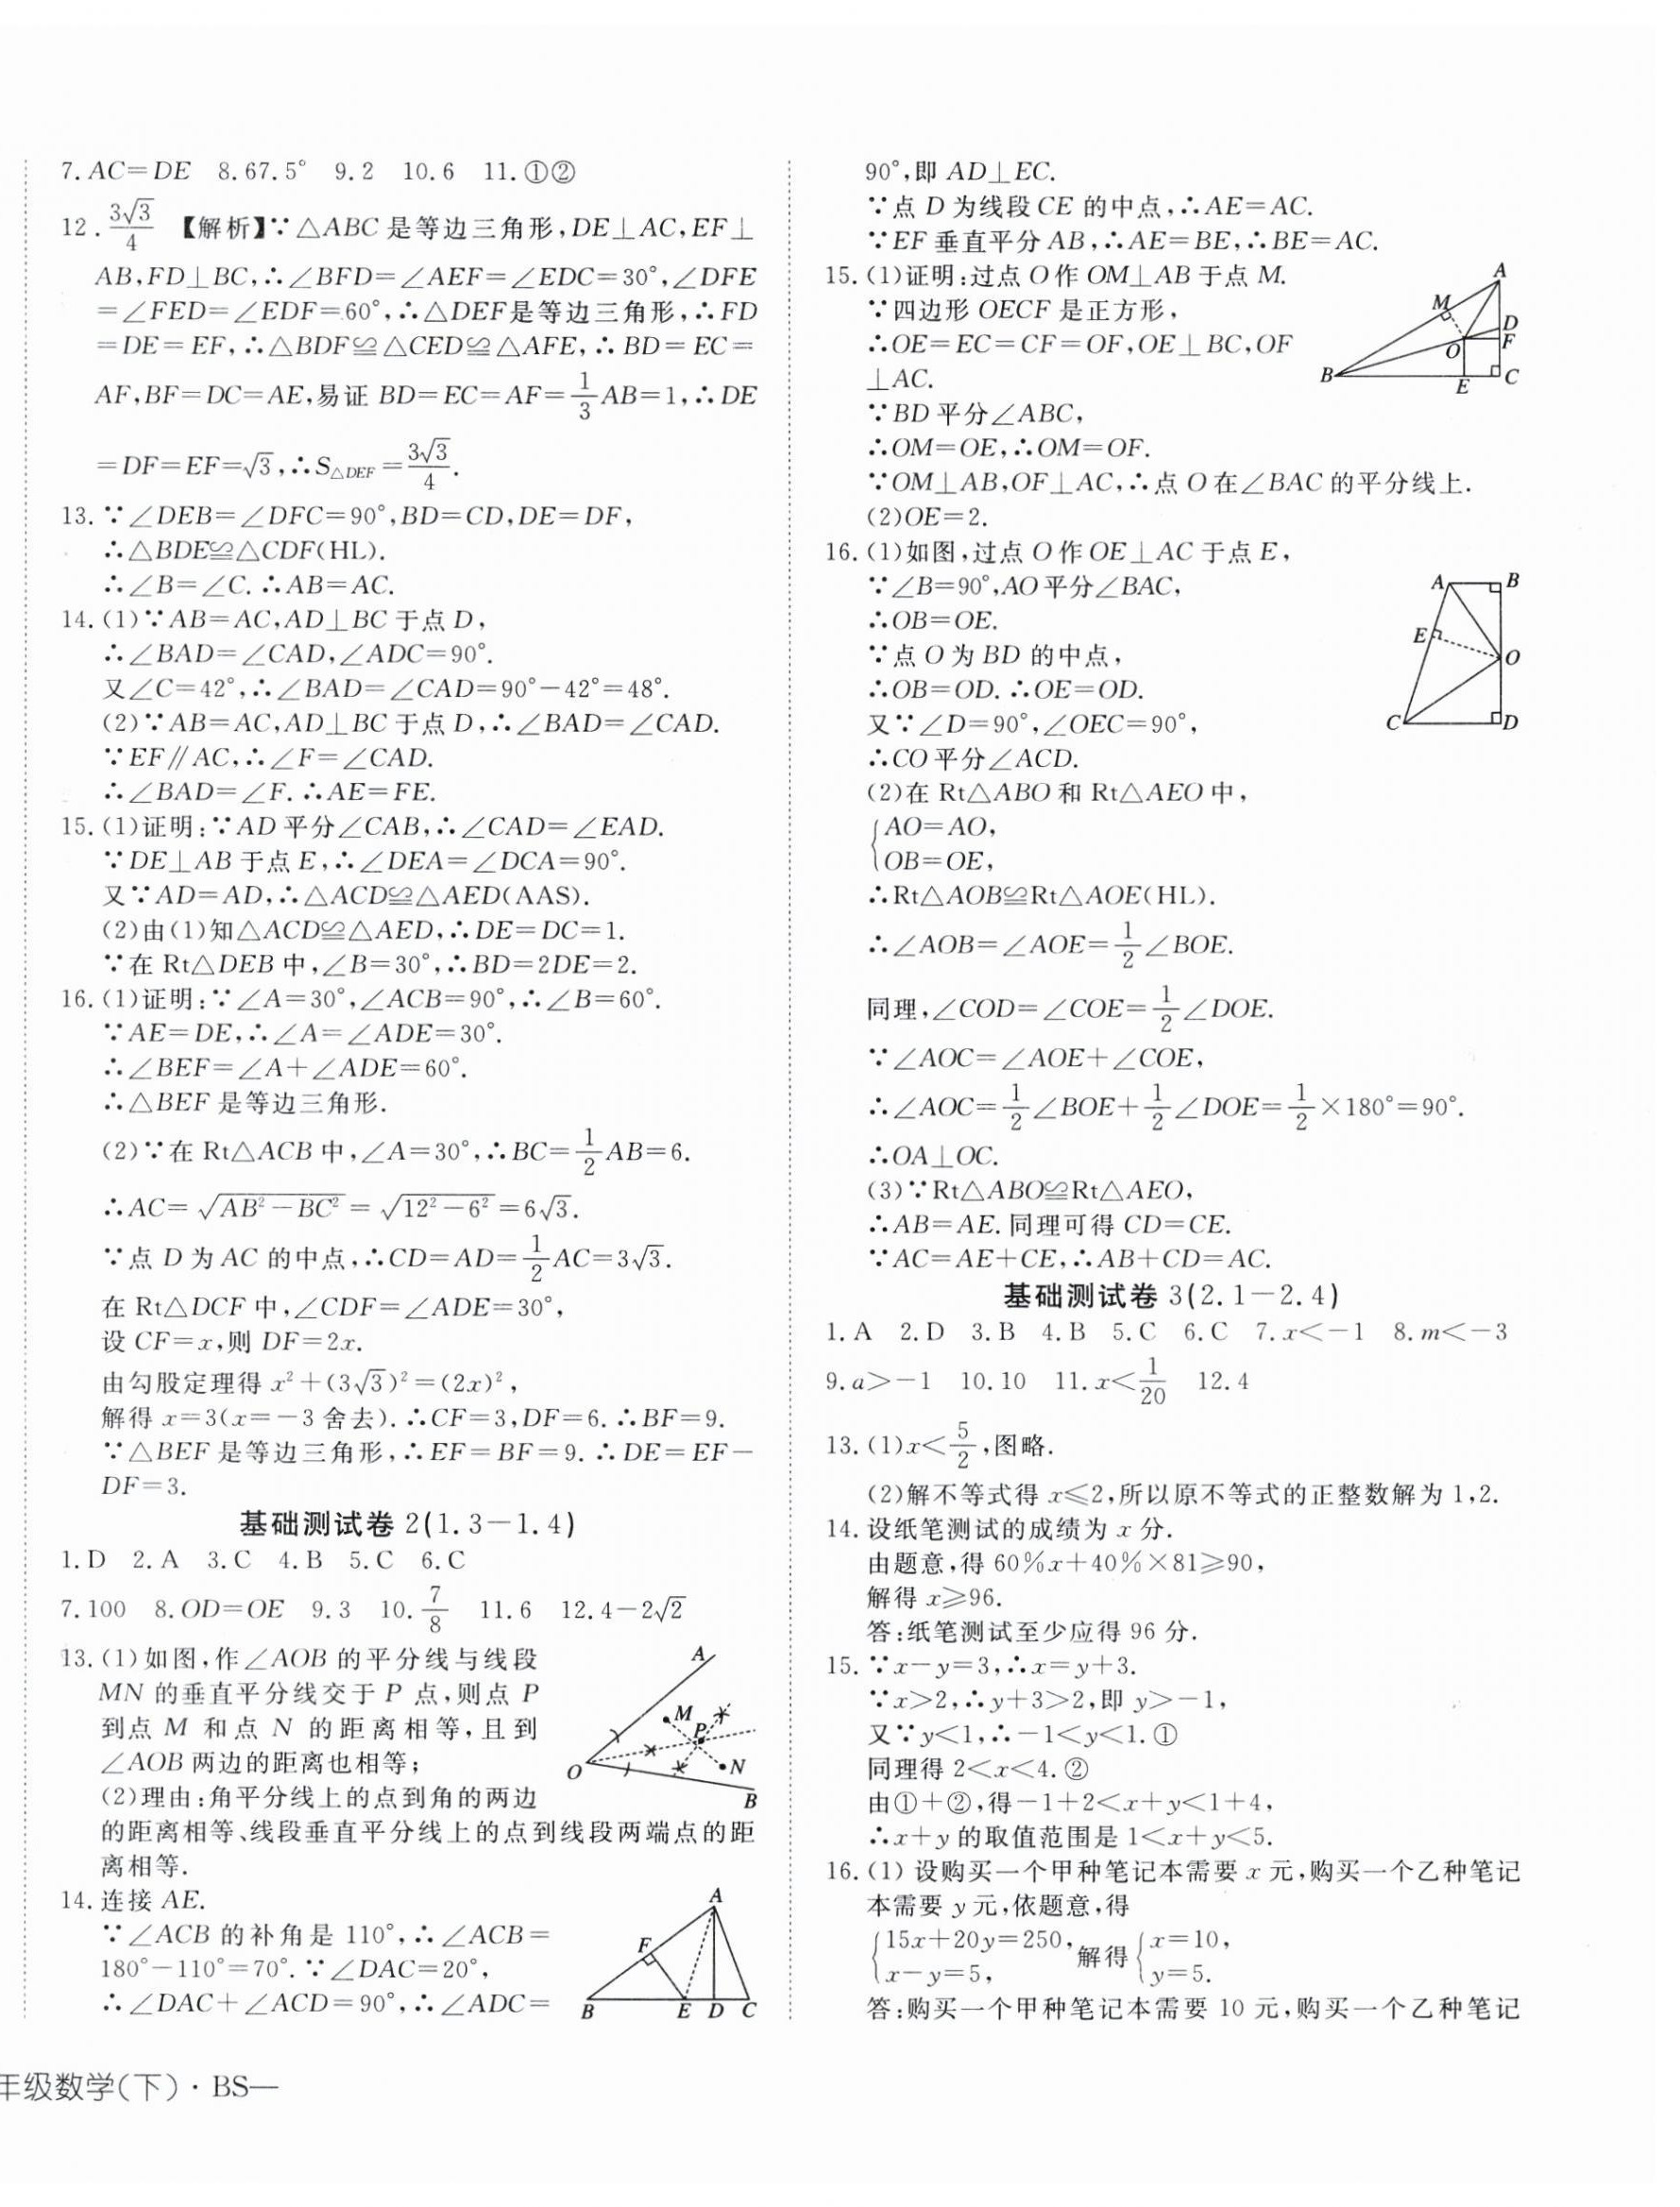 7. AC=DE 8. 67.5° 9. 2 10. 6 11. ①②
12. 3√3/4 【解析】∵△ABC 是等边三角形,DE⊥AC,EF⊥
AB,FD⊥BC,∴∠BFD=∠AEF=∠EDC=30°,∠DFE
=∠FED=∠EDF=60°,∴△DEF是等边三角形,∴FD
=DE=EF,∴△BDF≌△CED≌△AFE,∴BD=EC=
AF,BF=DC=AE,易证 BD=EC=AF=1/3AB=1,∴DE
=DF=EF=√3,∴S△DEF=3√3/4.
13. ∵∠DEB=∠DFC=90°,BD=CD,DE=DF,
∴△BDE≌△CDF(HL).
∴∠B=∠C.∴AB=AC.
14. (1)∵AB=AC,AD⊥BC 于点 D,
∴∠BAD=∠CAD,∠ADC=90°.
又∠C=42°,∴∠BAD=∠CAD=90°-42°=48°.
(2)∵AB=AC,AD⊥BC 于点 D,∴∠BAD=∠CAD.
∵EF∥AC,∴∠F=∠CAD.
∴∠BAD=∠F.∴AE=FE.
15. (1)证明:∵AD 平分∠CAB,∴∠CAD=∠EAD.
∵DE⊥AB 于点 E,∴∠DEA=∠DCA=90°.
又∵AD=AD,∴△ACD≌△AED(AAS).
(2)由(1)知△ACD≌△AED,∴DE=DC=1.
∵在 Rt△DEB 中,∠B=30°,∴BD=2DE=2.
16. (1)证明:∵∠A=30°,∠ACB=90°,∴∠B=60°.
∵AE=DE,∴∠A=∠ADE=30°.
∴∠BEF=∠A+∠ADE=60°.
∴△BEF 是等边三角形.
(2)∵在 Rt△ACB 中,∠A=30°,∴BC=1/2AB=6.
∴AC=√(AB²-BC²)=√(12²-6²)=6√3.
∵点 D 为 AC 的中点,∴CD=AD=1/2AC=3√3.
在 Rt△DCF 中,∠CDF=∠ADE=30°,
设 CF=x,则 DF=2x.
由勾股定理得 x²+(3√3)²=(2x)²,
解得 x=3(x=-3 舍去).∴CF=3,DF=6.∴BF=9.
∵△BEF 是等边三角形,∴EF=BF=9.∴DE=EF-
DF=3.
基础测试卷 2(1.3-1.4)
1. D 2. A 3. C 4. B 5. C 6. C
7. 100 8. OD=OE 9. 3 10. 7/8 11. 6 12. 4-2√2
13. (1)如图,作∠AOB 的平分线与线段
MN 的垂直平分线交于 P 点,则点 P
到点 M 和点 N 的距离相等,且到
∠AOB 两边的距离也相等;
(2)理由:角平分线上的点到角的两边
的距离相等、线段垂直平分线上的点到线段两端点的距
离相等.
A
M
P
N
O
B
14. 连接 AE.
∵∠ACB 的补角是 110°,∴∠ACB=
180°-110°=70°.∵∠DAC=20°,
∴∠DAC+∠ACD=90°,∴∠ADC=
A
F
B E D C
90°,即 AD⊥EC.
∵点 D 为线段 CE 的中点,∴AE=AC.
∵EF 垂直平分 AB,∴AE=BE,∴BE=AC.
15. (1)证明:过点 O 作 OM⊥AB 于点 M.
∵四边形 OECF 是正方形,
∴OE=EC=CF=OF,OE⊥BC,OF
⊥AC.
∵BD 平分∠ABC,
∴OM=OE,∴OM=OF.
∵OM⊥AB,OF⊥AC,∴点 O 在∠BAC 的平分线上.
(2)OE=2.
A
M
D
O F
B E C
16. (1)如图,过点 O 作 OE⊥AC 于点 E,
∵∠B=90°,AO 平分∠BAC,
∴OB=OE.
∵点 O 为 BD 的中点,
∴OB=OD.∴OE=OD.
又∵∠D=90°,∠OEC=90°,
∴CO 平分∠ACD.
A B
E
O
C D
(2)在 Rt△ABO 和 Rt△AEO 中,
{AO=AO,
OB=OE,
∴Rt△AOB≌Rt△AOE(HL).
∴∠AOB=∠AOE=1/2∠BOE.
同理,∠COD=∠COE=1/2∠DOE.
∵∠AOC=∠AOE+∠COE,
∴∠AOC=1/2∠BOE+1/2∠DOE=1/2×180°=90°.
∴OA⊥OC.
(3)∵Rt△ABO≌Rt△AEO,
∴AB=AE.同理可得 CD=CE.
∵AC=AE+CE,∴AB+CD=AC.
基础测试卷 3(2.1-2.4)
1. A 2. D 3. B 4. B 5. C 6. C 7. x<-1 8. m<-3
9. a>-1 10. 10 11. x<1/20 12. 4
13. (1)x<5/2,图略.
(2)解不等式得 x≤2,所以原不等式的正整数解为 1,2.
14. 设纸笔测试的成绩为 x 分.
由题意,得 60%x+40%×81≥90,
解得 x≥96.
答:纸笔测试至少应得 96 分.
15. ∵x-y=3,∴x=y+3.
∵x>2,∴y+3>2,即 y>-1,
又∵y<1,∴-1<y<1.①
同理得 2<x<4.②
由①+②,得-1+2<x+y<1+4,
∴x+y 的取值范围是 1<x+y<5.
16. (1) 设购买一个甲种笔记本需要 x 元,购买一个乙种笔记
本需要 y 元,依题意,得
{15x+20y=250, 解得 {x=10,
x-y=5, y=5.
答:购买一个甲种笔记本需要 10 元,购买一个乙种笔记
年级数学(下)·BS—